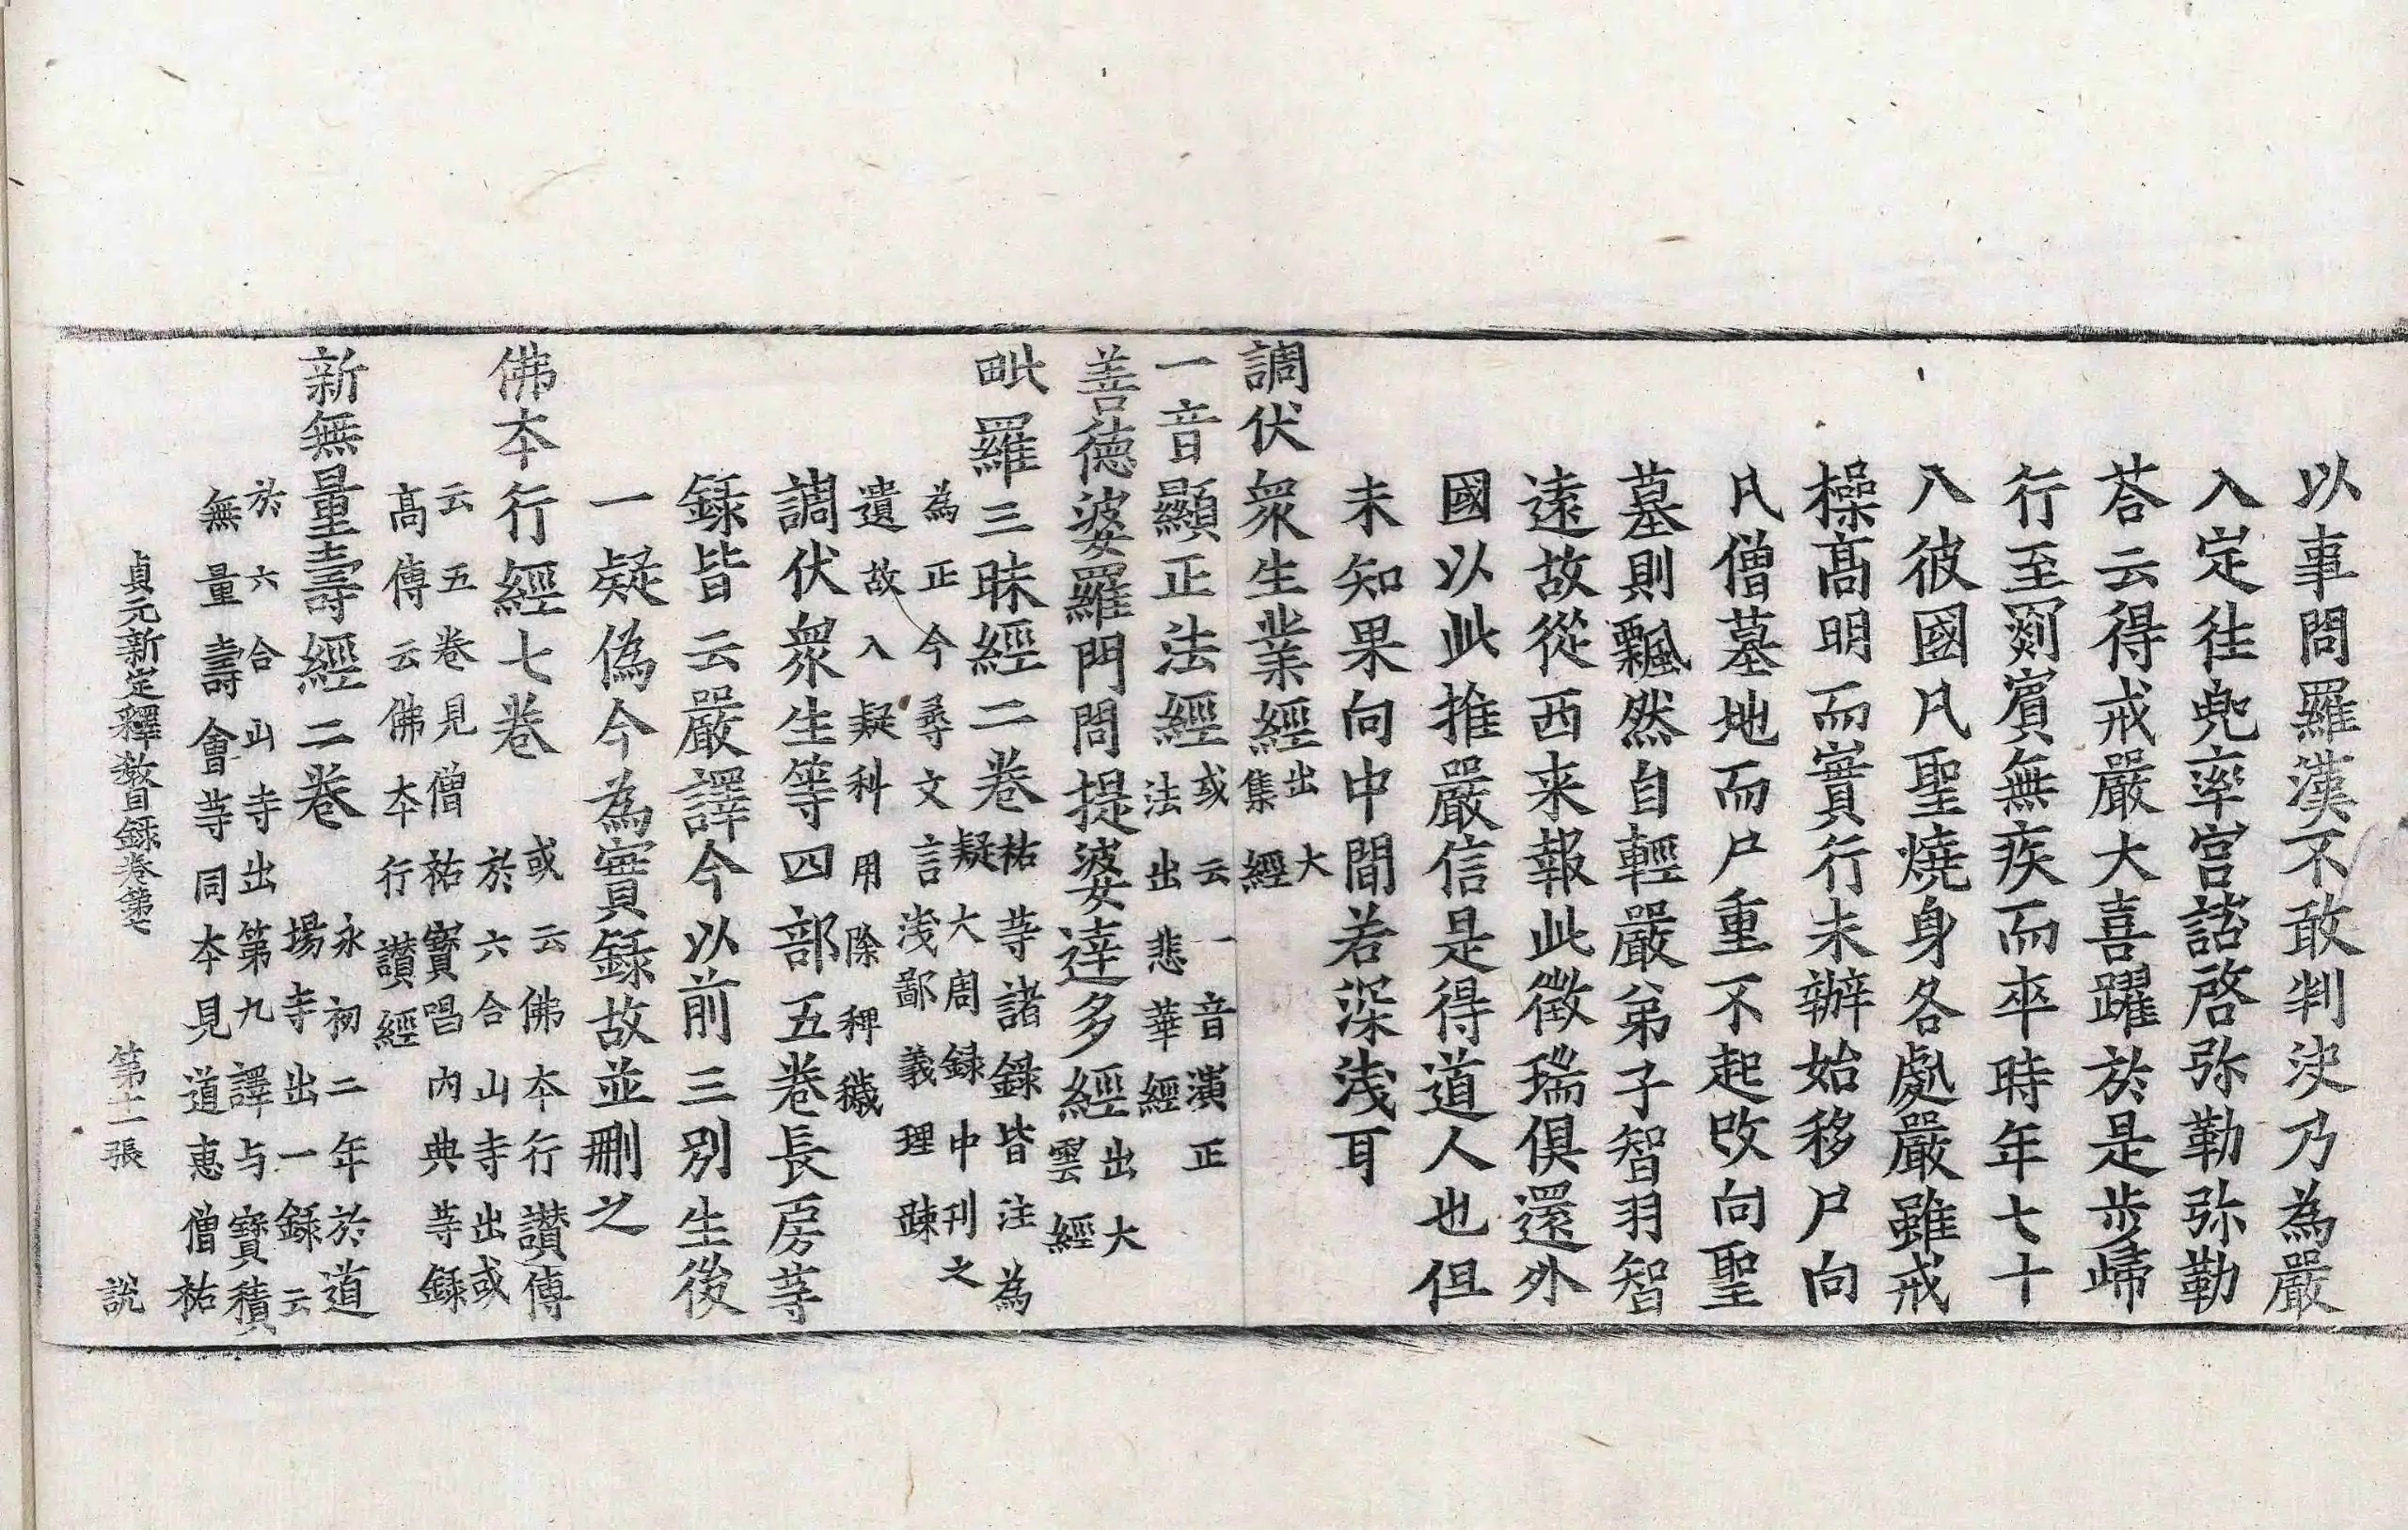 以事問羅漢不敢判決乃為嚴
入定往兜率宮諮啓弥勒弥勒
荅云得戒嚴大喜躍於是步歸
行至罽賓無疾而卒時年七十
八彼國凡聖燒身各處嚴雖戒
操髙明而實行未辦始移尸向
凡僧墓地而尸重不起改向聖
墓則飄然自輕嚴弟子智羽智
遠故從西来報此徵瑞俱還外
國以此推嚴信是得道人也但
未知果向中間若深淺耳
調伏衆生業經出大集經
一音顯正法經或云一音演正法出悲華經
善德婆羅門問提婆達多經出大雲經
毗羅三昧經二卷祐等諸錄皆注為疑大周録中刊之
為正今尋文言淺鄙義理踈
遺故入疑科用除稗穢
調伏衆生等四部五卷長房等
録皆云嚴譯今以前三別生後
一疑偽今為實録故並刪之
佛本行經七卷
或云佛本行讚傳
於六合山寺出或
云五卷見僧祐寶唱內典等録
髙傳云佛本行讚經
新無量壽經二卷
永初二年於道
場寺出一録云
於六合山寺出第九譯与寶積
無量壽會等同本見道惠僧祐
貞元新定釋教目録卷第七 第十二張 說